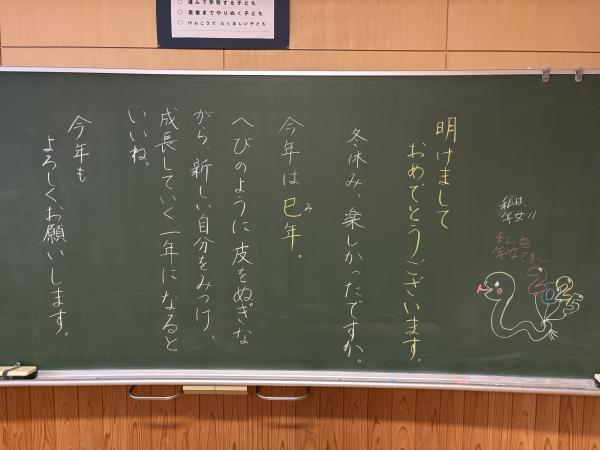 進んで学習する子ども
最後までやりぬく子ども
けんこうで たくましい子ども
明けまして
おめでとうございます。
冬休み、楽しかったですか。
今年は巳年。
み
へびのように皮をぬぎな
がら、新しい自分をみつけ、
成長していく一年になると
いいね。
今年も
よろしくお願いします。
私は
年女!!
私も
年女です〜
2025